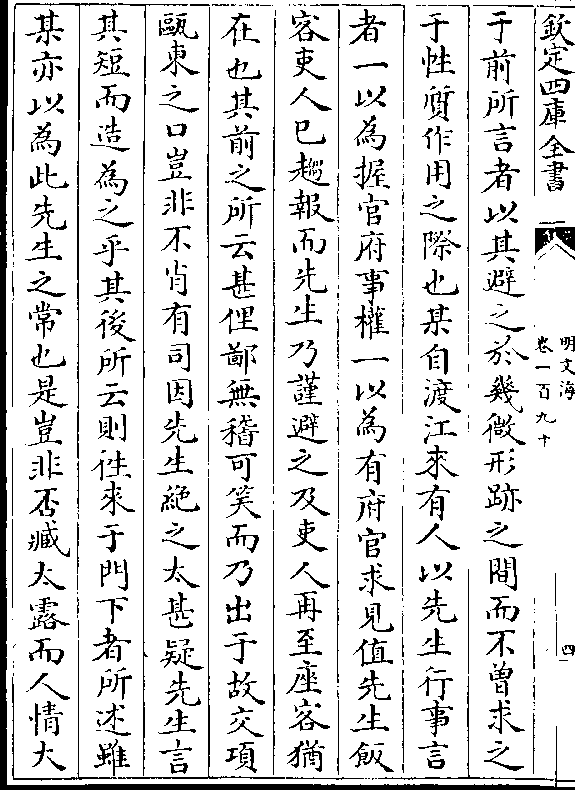 欽定四庫全書
明文海
卷一百九十
四
于前所言者以其避之於幾微形跡之間而不曾求之
于性質作用之際也某自渡江來有人以先生行事言
者一以為握官府事權一以為有府官求見值先生飯
客吏人已趨報而先生乃謹避之及吏人再至座客猶
在也其前之所云甚俚鄙無稽可笑而乃出于故交項
甌東之口豈非不肖有司因先生絶之太甚疑先生言
其短而造為之乎其後所云則徃來于門下者所述雖
某亦以為此先生之常也是豈非否臧太露而人情大